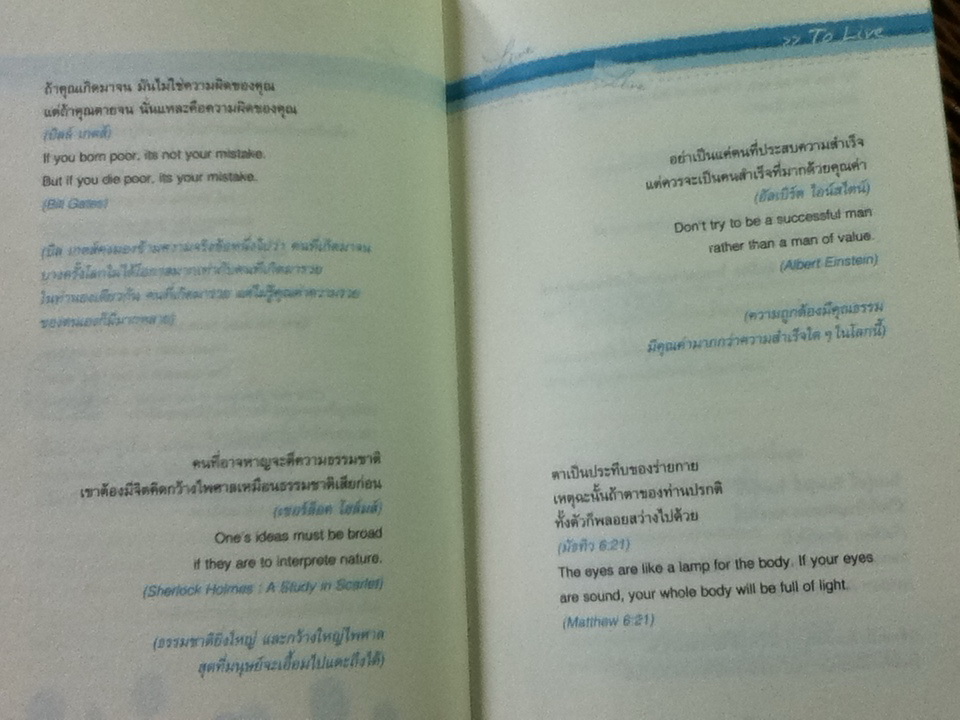 ถ้าคุณเกิดมาจน มันไม่ใช่ความผิดของคุณ
แต่ถ้าคุณตายจน นั่นแหละคือความผิดของคุณ
(บิลล์ เกตส์)
If you born poor, its not your mistake.
But if you die poor, its your mistake.
(Bill Gates)
(บิล เกตส์คงมองข้ามความจริงข้อหนึ่งไปว่า คนที่เกิดมาจน
บางครั้งโลกไม่ได้โอกาสมากเท่ากับคนที่เกิดมารวย
ในทำนองเดียวกัน คนที่เกิดมารวย แต่ไม่รู้คุณค่าความรวย
ของตนเองก็มีมากหลาย)
คนที่อาจหาญจะตีความธรรมชาติ
เขาต้องมีจิตคิดกว้างไพศาลเหมือนธรรมชาติเสียก่อน
(เชอร์ล็อค โฮล์มส์)
One's ideas must be broad
if they are to interprete nature.
(Sherlock Holmes : A Study in Scarlet)
(ธรรมชาติยิ่งใหญ่ และกว้างใหญ่ไพศาล
สุดที่มนุษย์จะเอื้อมไปแตะถึงได้)
Live
Live
>> To Live
อย่าเป็นแค่คนที่ประสบความสำเร็จ
แต่ควรจะเป็นคนสำเร็จที่มากด้วยคุณค่า
(อัลเบิร์ต ไอน์สไตน์)
Don't try to be a successful man
rather than a man of value.
(Albert Einstein)
(ความถูกต้องมีคุณธรรม
มีคุณค่ามากกว่าความสำเร็จใด ๆ ในโลกนี้)
ตาเป็นประทีปของร่ายกาย
เหตุฉะนั้นถ้าตาของท่านปรกติ
ทั้งตัวก็พลอยสว่างไปด้วย
(มัธทิว 6:21)
The eyes are like a lamp for the body. If your eyes
are sound, your whole body will be full of light.
(Matthew 6:21)